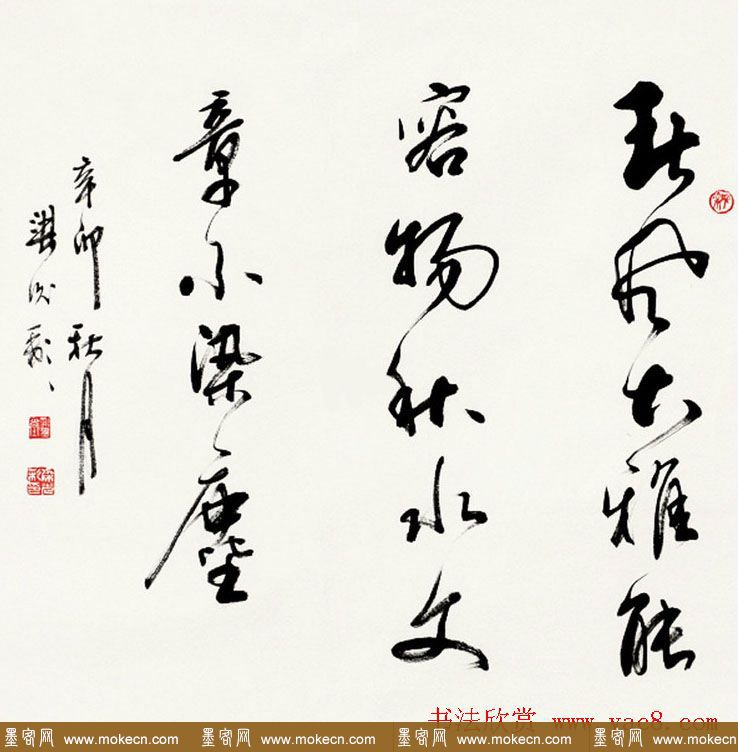 春風大雅能
容物秋水文
章不染塵
辛卯秋月
书法欣赏 www.yac8.com
墨客网 www.mokecn.com 墨客网 www.mokecn.com 墨客网 www.mokecn.com 墨客网 www.mokecn.com